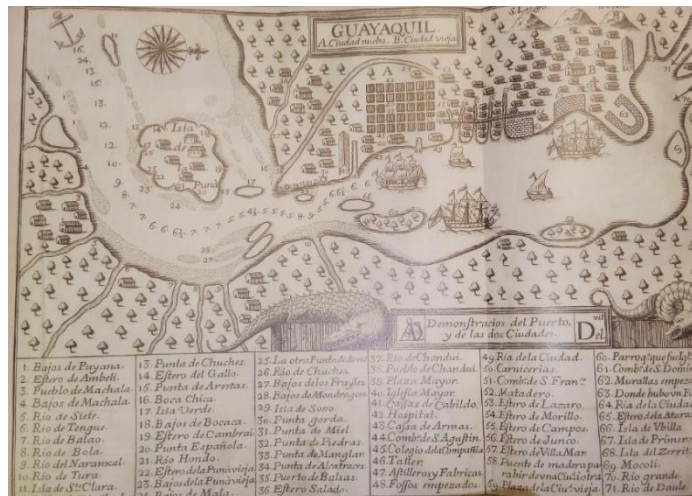 GUAYAQUIL.
A. Ciudad nueba. B. Ciudad vieja
A
B
Isla
de
la
Puna
Demonstracios del Puerto,
y de las dos Ciudades.
Del
1. Bajos de Payana.
2. Estero de Ambeli.
3. Pueblo de Machala.
4. Bajos de Machala.
5. Rio de Siete.
6. Rio de Tengue.
7. Rio de Balao.
8. Rio de Bola.
9. Rio del Naranxal.
10. Rio de Tura.
11. Isla de Sta. Clara.
13. Punta de Chuches.
14. Estero del Gallo.
15. Punta de Arentas.
16. Boca Chica.
17. Isla Verde.
18. Bajos de Bocaca.
19. Estero de Cambrai.
20. Punta Española.
21. Rio Hondo.
22. Estero de la Puna vieja
23. Bajos de la Puna vieja
24. Bajos de Mala.
25. La otra Punta de
26. Rio de Chuches.
27. Bajos de los Frayles.
28. Bajos de Mondragon
29. Isla de Sono.
30. Punta gorda.
31. Punta de Miel
32. Punta de Piedras
33. Punta de Manglar
34. Punta de Alcatraces
35. Puerto de Balsas.
36. Estero Salado.
37. Rio de Chandui.
38. Pueblo de Chandui.
39. Plaza Mayor.
40. Iglesia Mayor
41. Cassas de Cabildo.
42. Hospital.
43. Cassa de Armas.
44. Combto. de S. Agustin.
45. Colegio de la Compañia
46. Taller.
47. Astillero y Fabricas
48. Fossos empezados.
49. Ria de la Ciudad.
50. Carnicerias.
51. Combto. de S. Franco.
52. Matadero.
53. Estero de Lazaro.
54. Estero de Morillo.
55. Estero de Campos.
56. Estero de Junco.
57. Estero de Villa Mar.
58. Puente de madera pa
ra hir de vna Ciud. a otra.
59. Plaza de la Ciud. vieja.
60. Parroqa. que fue Igla.
61. Combto. de S. Domin
62. Murallas empez
63. Donde hubo vn F
64. Ria de la Ciudad
66. Isla de Vbilla
67. Isla de Primero
68. Isla del Zerrit
69. Mocoli.
70. Rio grande.
71. Rio de Daule.